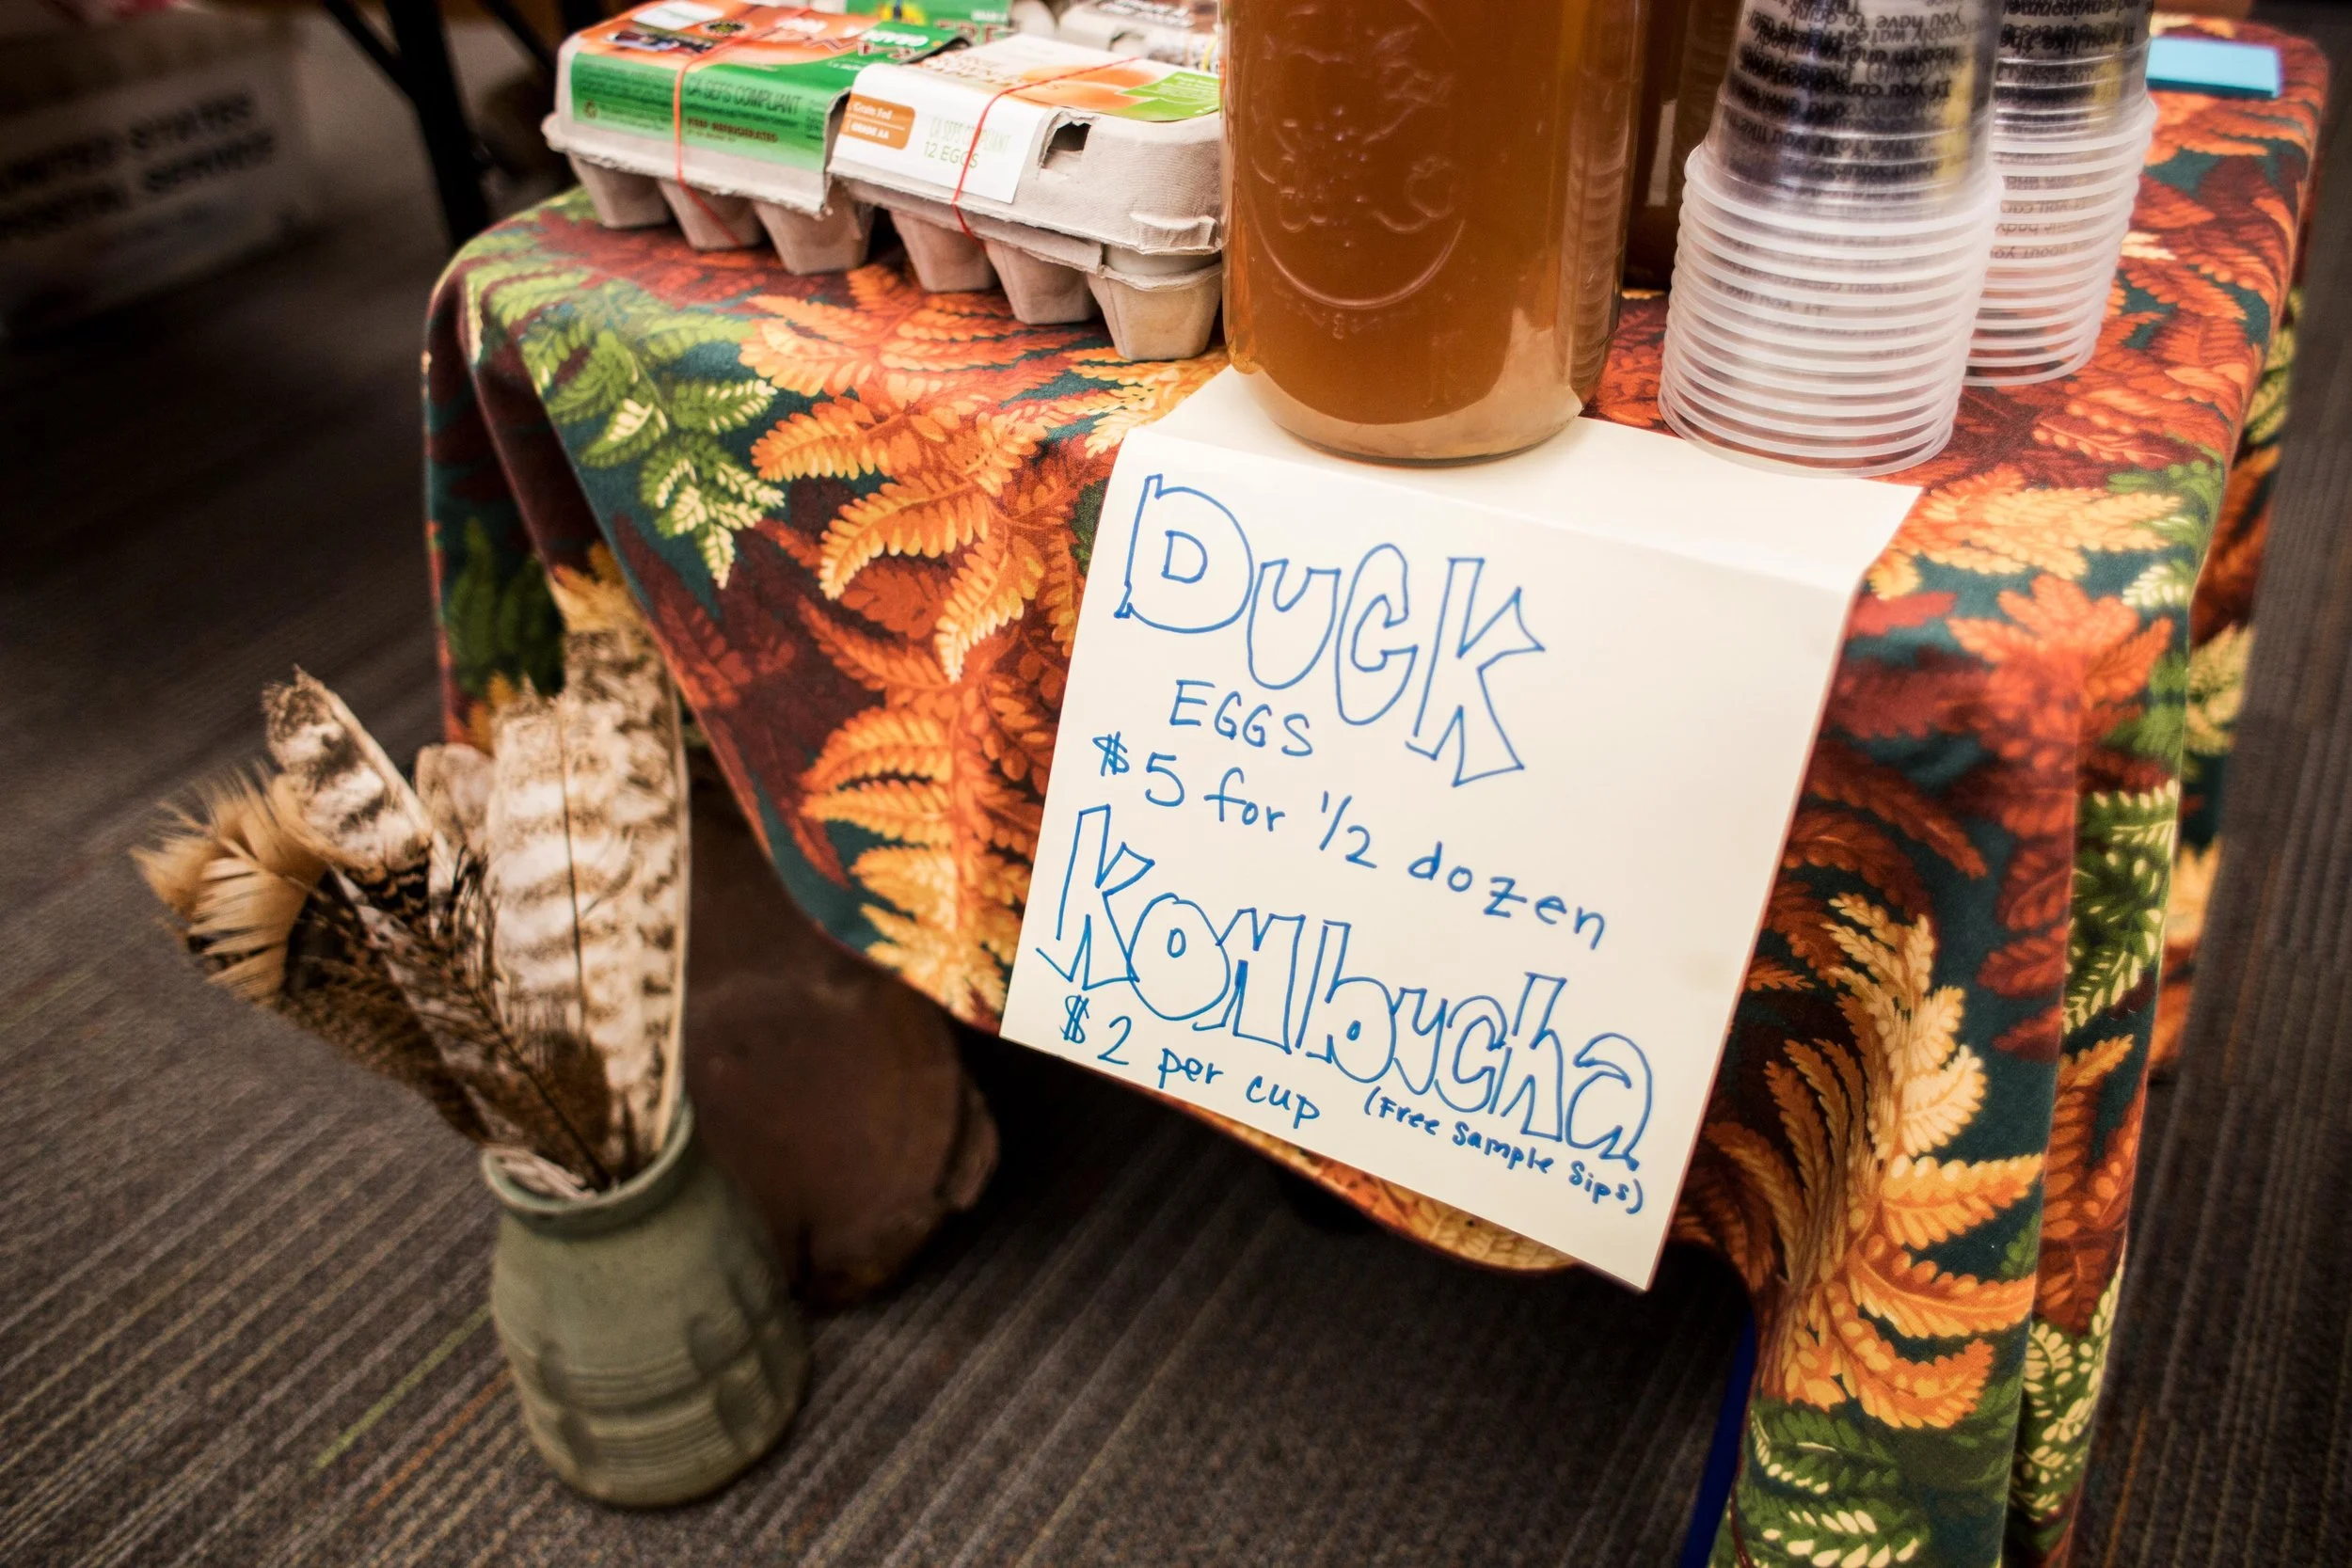 UNITED STATES
POSTAL SERVICE
CA SEFS COMPLIANT
KEEP REFRIGERATED
GRADE AA
CA SEFS COMPLIANT
12 EGGS
DUCK
EGGS
$5 for 1/2 dozen
Kombucha
$2 per cup (Free Sample Sips)